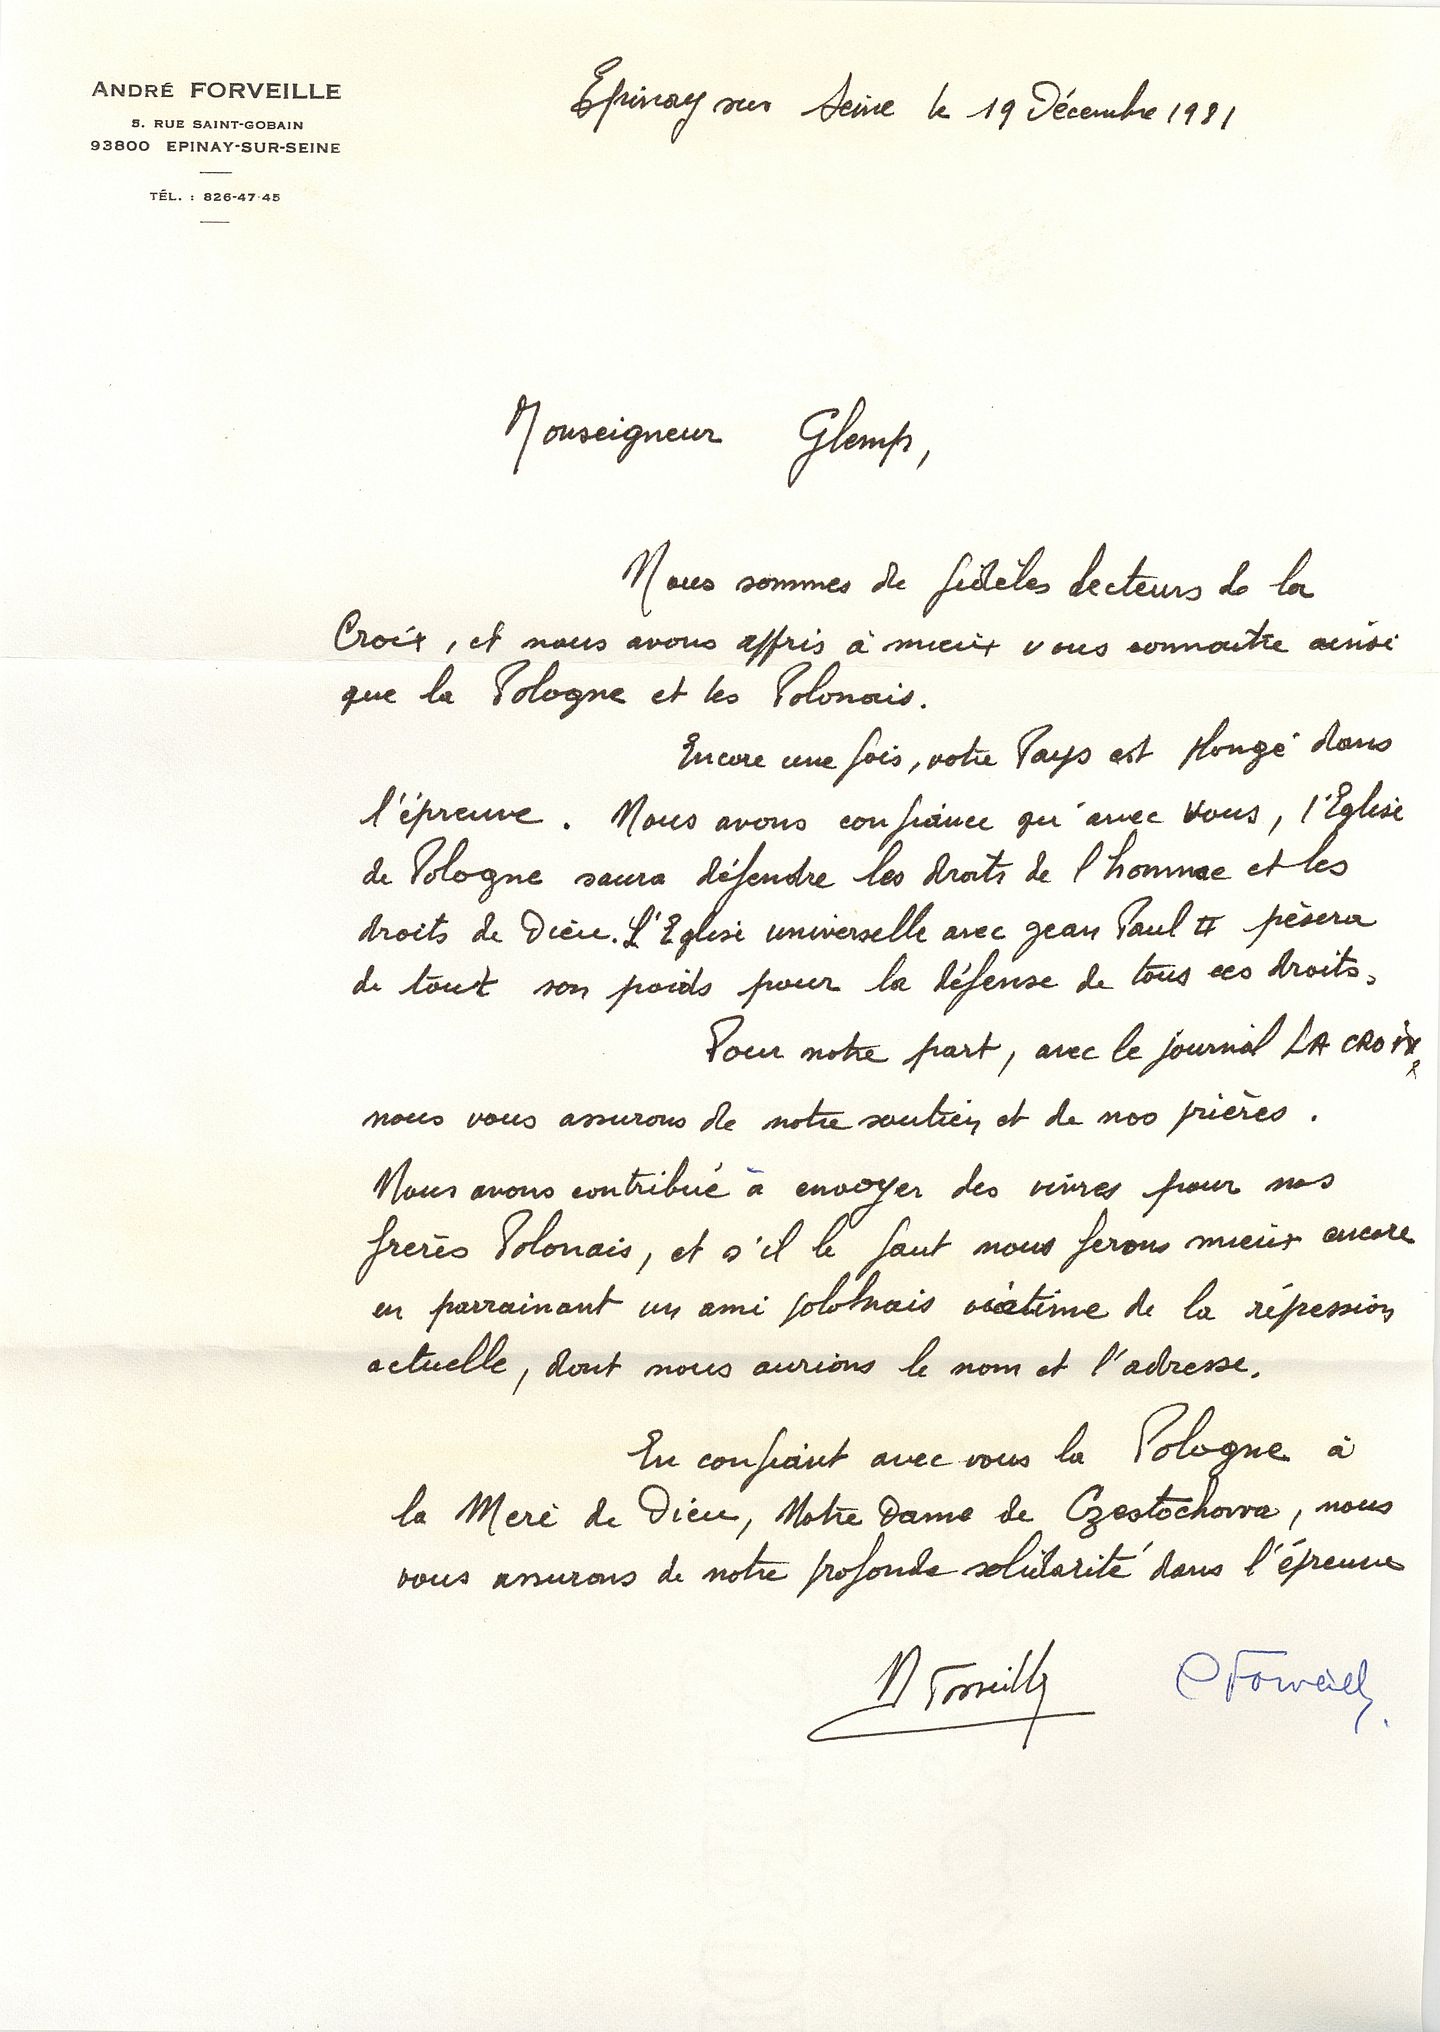 ANDRÉ FORVEILLE
5. RUE SAINT-GOBAIN
93800 EPINAY-SUR-SEINE
TÉL. : 826-47-45
Epinay sur Seine le 19 Décembre 1981
Monseigneur Glemp,
Nous sommes de fidèles lecteurs de la
Croix, et nous avons appris à mieux vous connaitre ainsi
que la Pologne et les Polonais.
Encore une fois, votre Pays est plongé dans
l'épreuve. Nous avons confiance qu'avec Vous, l'Eglise
de Pologne saura défendre les droits de l'homme et les
droits de Dieu. L'Eglise universelle avec Jean Paul II pèsera
de tout son poids pour la défense de tous ces droits.
Pour notre part, avec le journal LA CROIX,
nous vous assurons de notre soutien et de nos prières.
Nous avons contribué à envoyer des vivres pour nos
frères Polonais, et s'il le faut nous ferons mieux encore
en parrainant un ami polonais victime de la répression
actuelle, dont nous aurions le nom et l'adresse.
En confiant avec vous la Pologne à
la Mère de Dieu, Notre Dame de Czestochowa, nous
vous assurons de notre profonde solidarité dans l'épreuve
A Forveille C Forveille